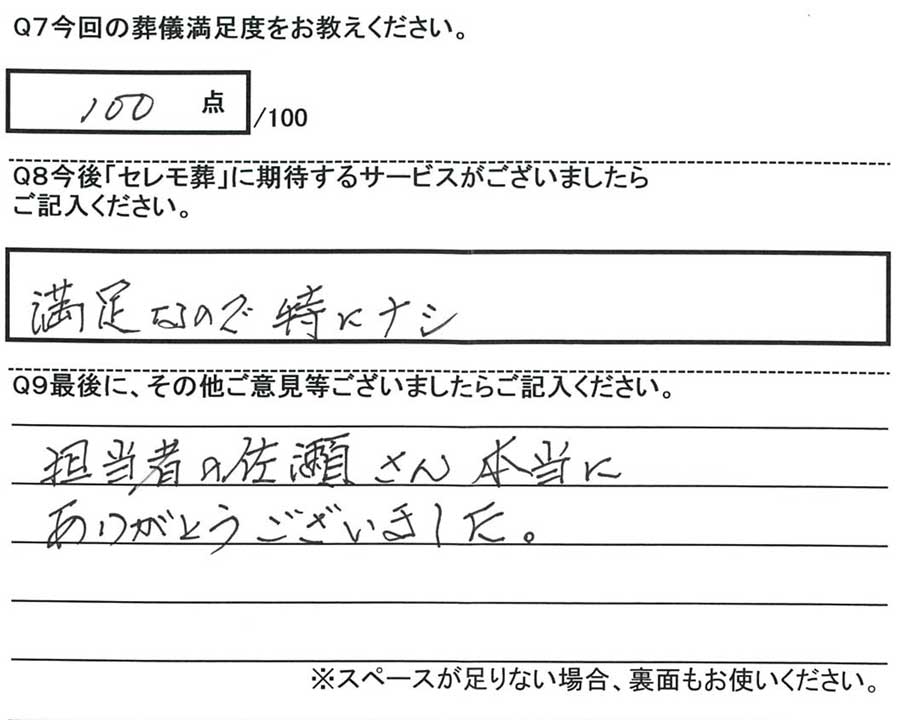 Q7今回の葬儀満足度をお教えください。
100 点 /100
Q8今後「セレモ葬」に期待するサービスがございましたら
ご記入ください。
満足なので 特にナシ
Q9最後に、その他ご意見等ございましたらご記入ください。
担当者の佐瀬さん 本当に
ありがとうございました。
※スペースが足りない場合、裏面もお使いください。